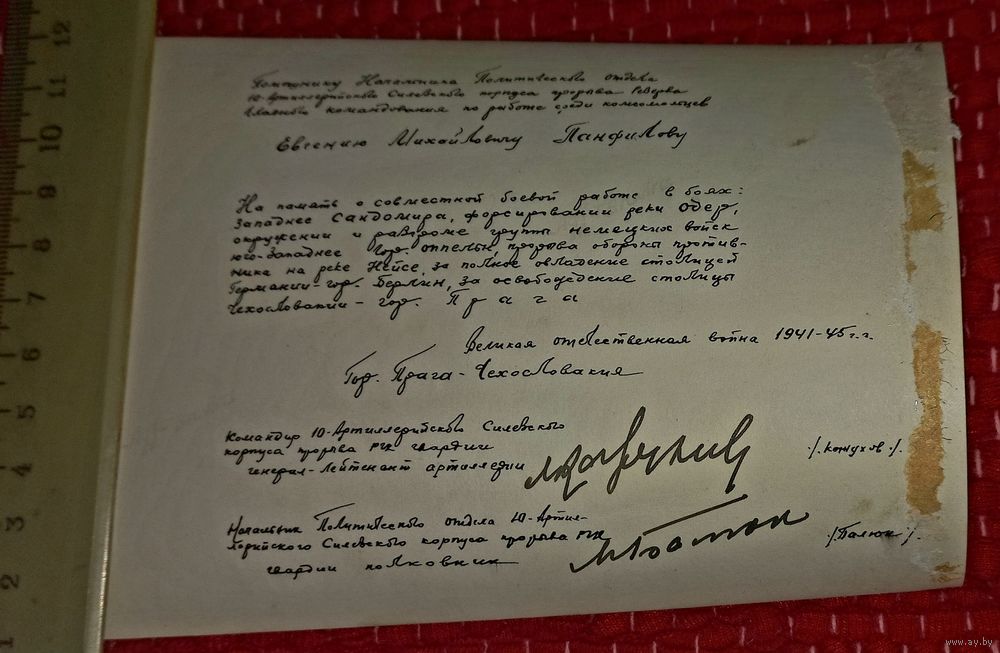 Помощнику Начальника Политического отдела
10-Артиллерийского Силезского корпуса прорыва Резерва
Главного командования по работе среди комсомольцев
Евгению Михайловичу Панфилову
На память о совместной боевой работе в боях:
Западнее Сандомира, форсировании реки Одер,
окружении и разгроме группы немецких войск
юго-западнее гор. Оппельн, прорыва обороны против-
ника на реке Нейсе, за полное овладение столицей
Германии-гор. Берлин, за освобождение столицы
Чехословакии - гор. Прага
Великая отечественная война 1941-45 г.г.
Гор. Прага - Чехословакия
Командир 10-Артиллерийского Силезского
корпуса прорыва РГК гвардии
генерал-лейтенант артиллерии
/.Кожухов./.
Начальник Политического отдела 10-Артил-
лерийского Силезского корпуса прорыва РГК
гвардии полковник
./Балюк/.
12
11
10
9
8
7
6
5
4
3
2
1
www.ay.by